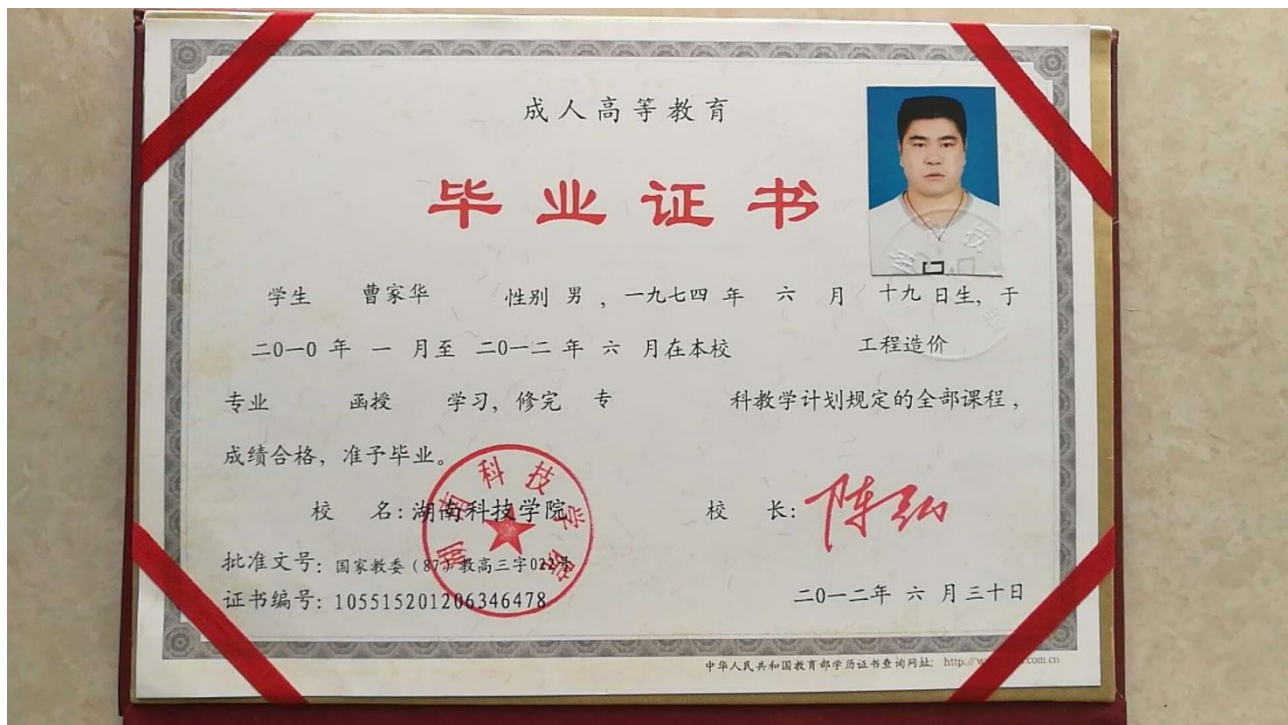 成人高等教育
毕业证书
学生 曹家华 性别 男 ,一九七四 年 六 月 十九 日生, 于
二0一0 年 一 月至 二0一二 年 六 月在本校 工程造价
专业 函授 学习, 修完 专 科教学计划规定的全部课程,
成绩合格, 准予毕业。
校 名: 湖南科技学院
校 长: 陈弘
湖南科技学院
批准文号: 国家教委(87)教高三字022号
证书编号: 105515201206346478
二0一二年 六 月 三十日
中华人民共和国教育部学历证书查询网址: http://w .com.cn